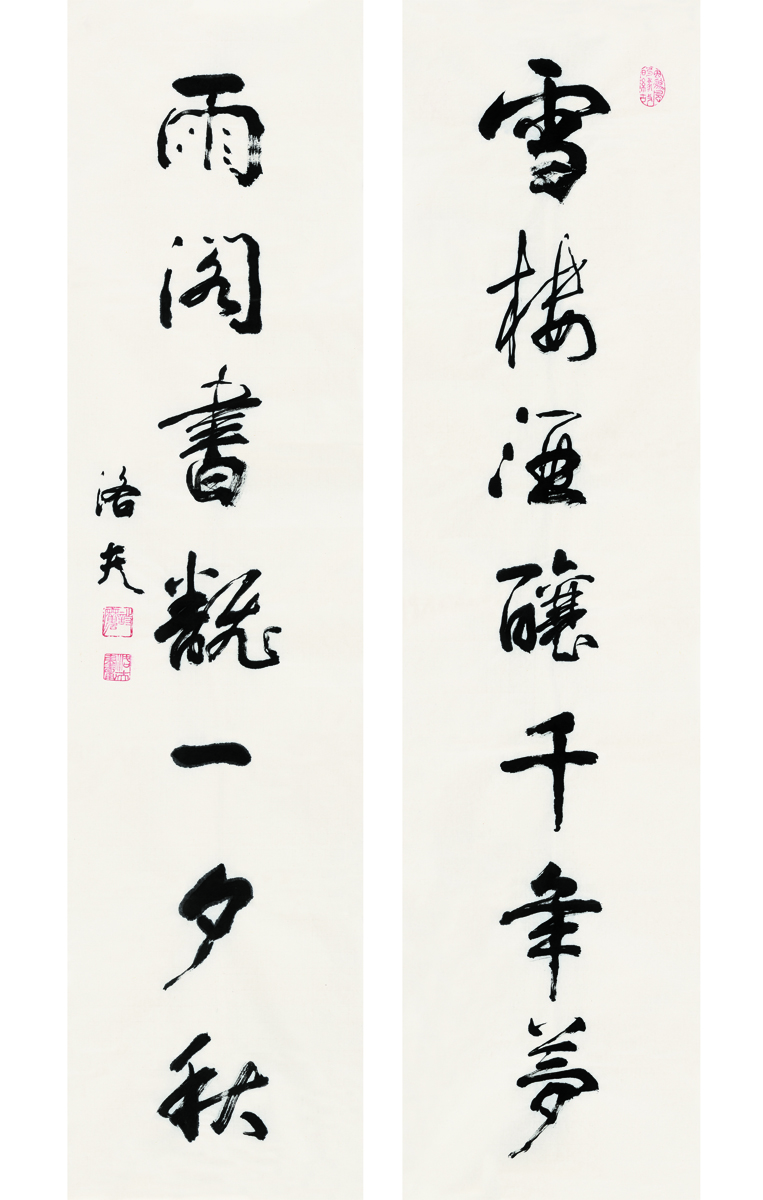 雪樓酒釀千年夢
雨閣書翻一夕秋
洛夫